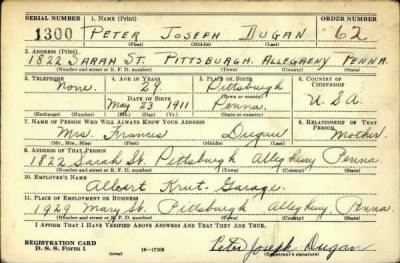 SERIAL NUMBER 1. NAME (Print) ORDER NUMBER
1300 PETER JOSEPH DUGAN 62
(First) (Middle) (Last)
2. ADDRESS (Print)
1822 SARAH ST. PITTSBURGH. ALLEGHENY PENNA.
(Number and street or R. F. D. number) (Town) (County) (State)
3. TELEPHONE 4. AGE IN YEARS 5. PLACE OF BIRTH 6. COUNTRY OF CITIZENSHIP
None. 29. Pittsburgh
DATE OF BIRTH (Town or county)
May 23 1911 Penna. U.S.A.
(Exchange) (Number) (Mo.) (Day) (Yr.) (State or country)
7. NAME OF PERSON WHO WILL ALWAYS KNOW YOUR ADDRESS 8. RELATIONSHIP OF THAT PERSON
Mrs. Frances Dugan Mother.
(Mr., Mrs., Miss) (First) (Middle) (Last)
9. ADDRESS OF THAT PERSON
1822 Sarah St. Pittsburgh Allegheny Penna
(Number and street or R. F. D. number) (Town) (County) (State)
10. EMPLOYER'S NAME
Albert Garage.
11. PLACE OF EMPLOYMENT OR BUSINESS
1929 Mary St. Pittsburgh Allegheny, Penna.
(Number and street or R. F. D. number) (Town) (County) (State)
I AFFIRM THAT I HAVE VERIFIED ABOVE ANSWERS AND THAT THEY ARE TRUE.
REGISTRATION CARD
D. S. S. Form 1 (over) Peter Joseph Dugan
(Registrant's signature)